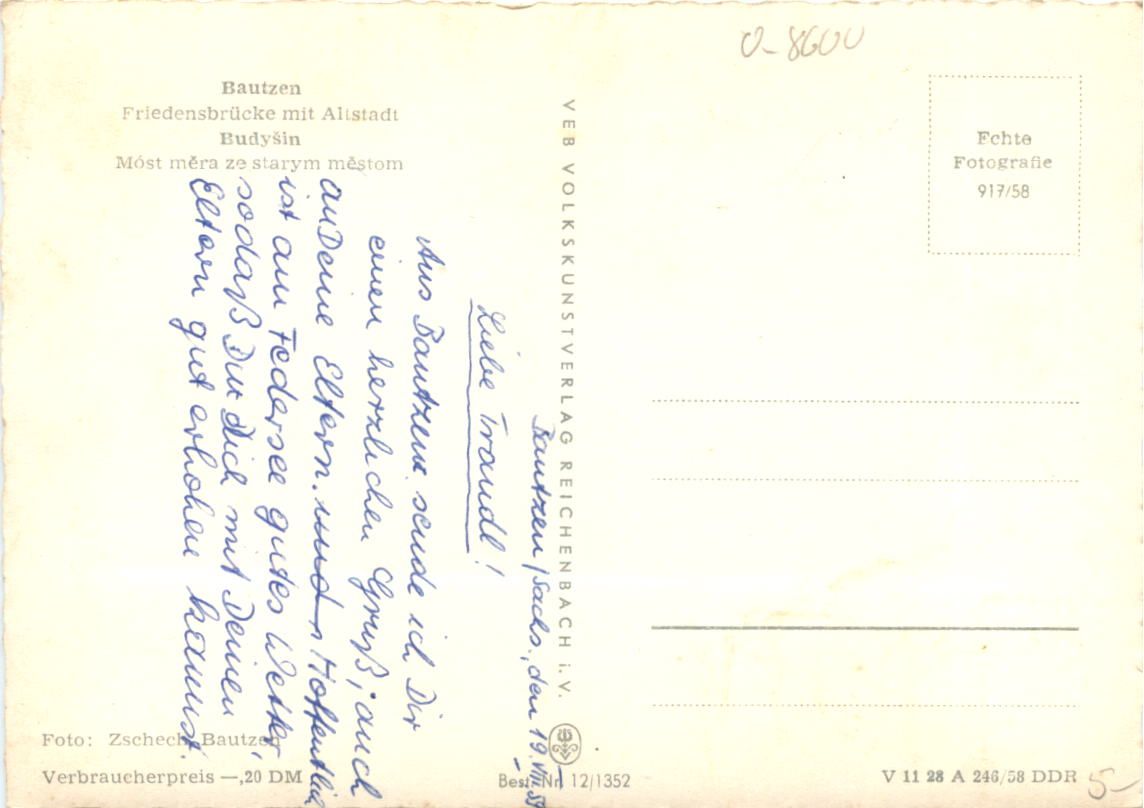 O-8600
Bautzen
Friedensbrücke mit Altstadt
Budyšin
Móst měra ze starym městom
Echte
Fotografie
917/58
VEB VOLKSKUNSTVERLAG REICHENBACH i. V.
Bautzen/Sachs., den 19. VIII. 59
Liebe Traudl!
Aus Bautzen sende ich Dir
einen herzlichen Gruß, auch
an Deine Eltern. und Hoffentlich
ist am Federsee gutes Wetter,
sodaß Du Dich mit Deinen
Eltern gut erholen kannst.
Foto: Zschech, Bautzen
Verbraucherpreis —,20 DM
Best.-Nr. 12/1352
V 11 28 A 246/58 DDR
5-